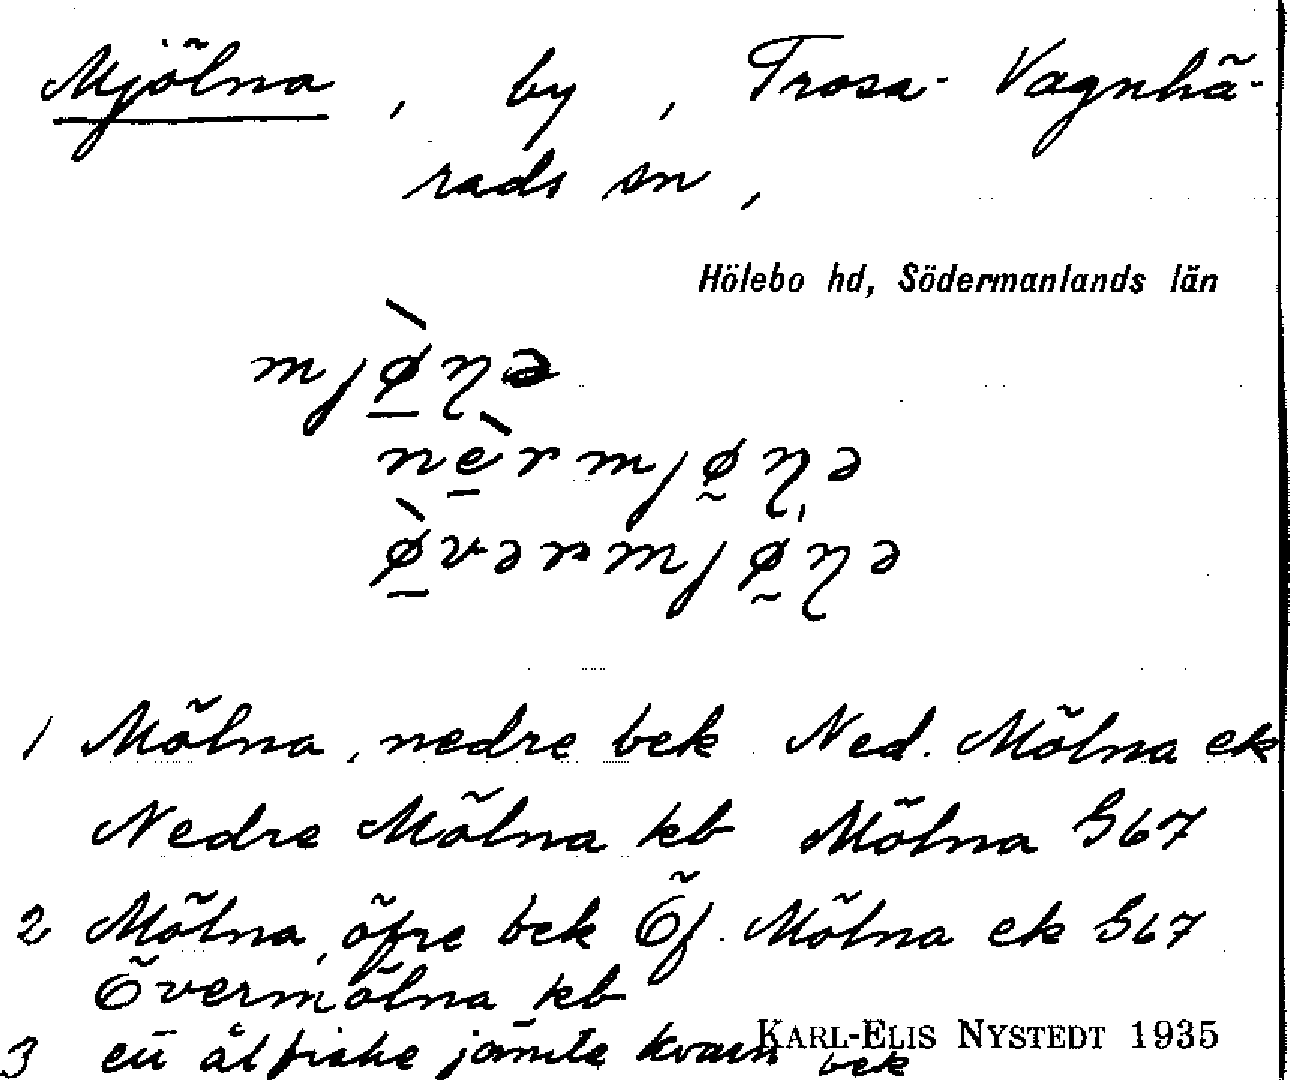 Mjölna, by, Trosa-Vagnhä-
rads sn,
Hölebo hd, Södermanlands län
mjø̀ɳə
nèrmjøɳə
ø̀vərmjøɳə
1 Mölna, nedre bek Ned. Mölna ek
Nedre Mölna kb Mölna G67
2 Mölna, öfre bek Öf. Mölna ek G67
Övermölna kb
3 ett ålfiske jämte kvarn bek
KARL-ELIS NYSTEDT 1935